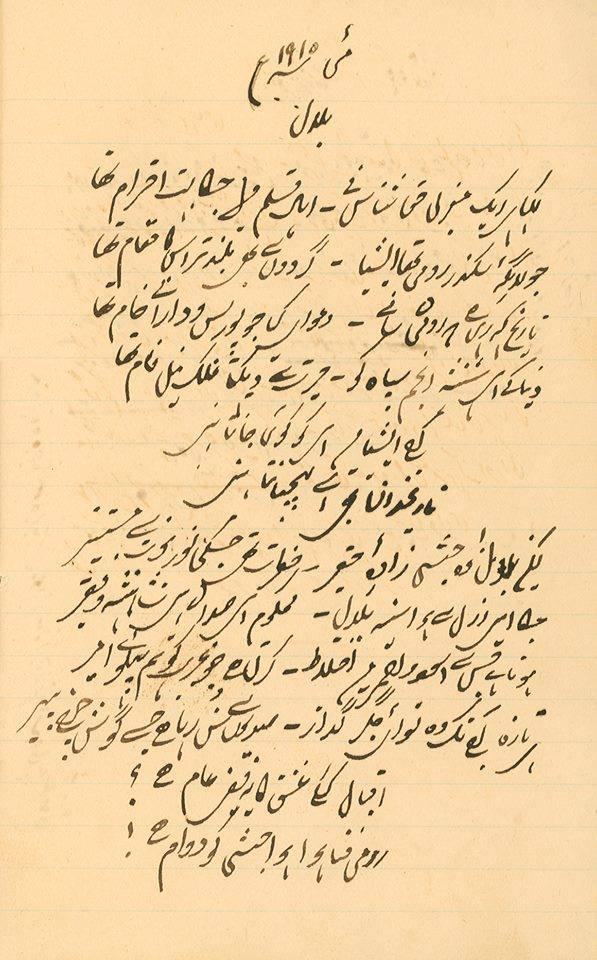 مئی ۱۹۱۵ء
بلال
لکھا ہے ایک مغربی حق شناس نے - اہل قلم میں جس کا بہت احترام تھا
جولانگہ سکندر رومی تھا ایشیا - گردوں سے بھی بلند تر اس کا مقام تھا
تاریخ کہہ رہی ہے کہ رومی کے سامنے - دعویٰ کیا جو پورس و دارا نے خام تھا
دنیا کے اس شہنشہ انجم سپاہ کو - حیرت سے دیکھتا فلک نیل فام تھا
آج ایشیا میں اس کو کوئی جانتا نہیں
تاریخ دان بھی اسے پہچانتا نہیں
لیکن بلال وہ حبشی زادۂ حقیر - فطرت تھی جس کی نور نبوت سے مستنیر
جس کا امیں ازل سے ہوا سینۂ بلال - محکوم اس صدا کے ہیں شاہنشہ و فقیر
ہوتا ہے جس سے اسود و احمر میں اختلاط - کرتی ہے جو غریب کو ہم پہلوئے امیر
ہے تازہ آج تک وہ نوائے جگر گداز - صدیوں سے سن رہا ہے جسے گوش چرخ پیر
اقبال کس کے عشق کا یہ فیض عام ہے ؟
رومی فنا ہوا حبشی کو دوام ہے !